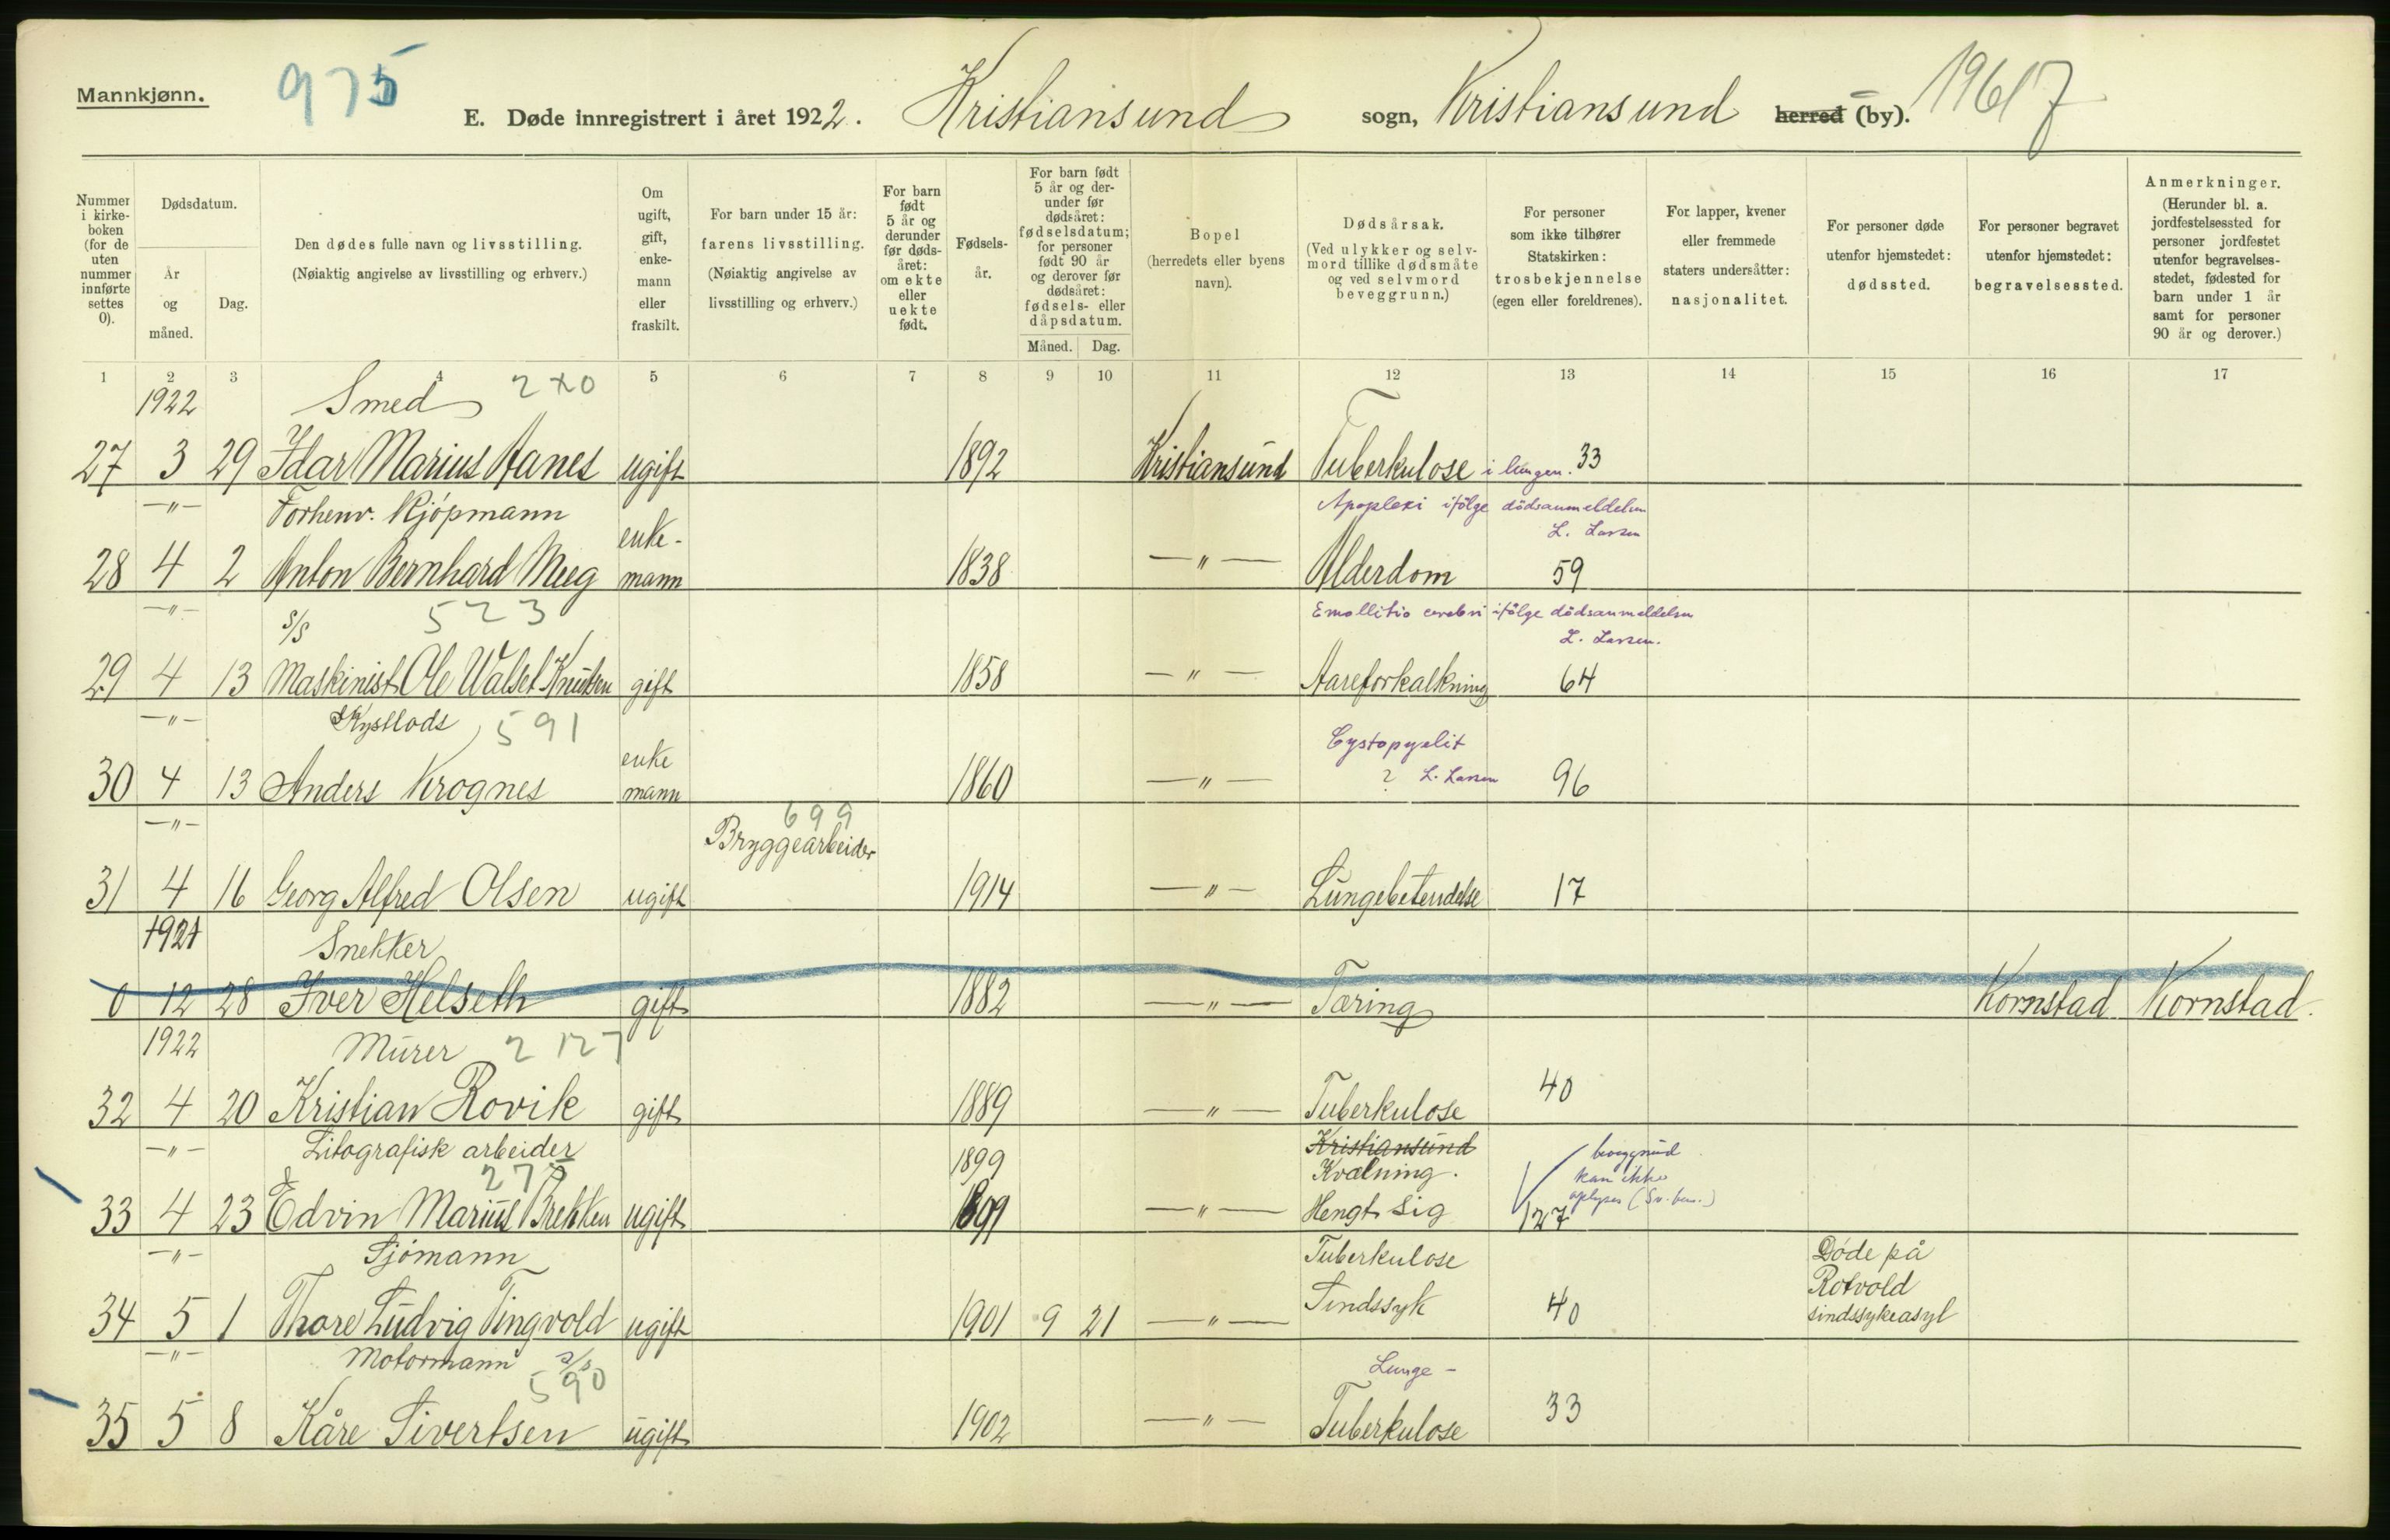 Mannkjønn.
975
E. Døde innregistrert i året 1922. Kristiansund sogn, Kristiansund herred (by).
Nummer i kirke- boken (for de uten nummer innførte settes 0).
Dødsdatum.
År og måned.
Dag.
Den dødes fulle navn og livsstilling.
(Nøiaktig angivelse av livsstilling og erhverv.)
Om ugift, gift, enke- mann eller fraskilt.
For barn under 15 år: farens livsstilling.
(Nøiaktig angivelse av livsstilling og erhverv.)
For barn født 5 år og derunder før døds- året: om ekte eller uekte født.
Fødsels- år.
For barn født 5 år og der- under før dødsåret: fødselsdatum; for personer født 90 år og derover før dødsåret: fødsels- eller dåpsdatum.
Måned. Dag.
Bopel (herredets eller byens navn).
Dødsårsak.
(Ved ulykker og selv- mord tillike dødsmåte og ved selvmord beveggrunn.)
For personer som ikke tilhører Statskirken: trosbekjennelse (egen eller foreldrenes).
For lapper, kvener eller fremmede staters undersåtter: nasjonalitet.
For personer døde utenfor hjemstedet: dødssted.
For personer begravet utenfor hjemstedet: begravelsessted.
Anmerkninger.
(Herunder bl. a. jordfestelsessted for personer jordfestet utenfor begravelses- stedet, fødested for barn under 1 år samt for personer 90 år og derover.)
1 2 3 4 5 6 7 8 9 10 11 12 13 14 15 16 17
1922 Smed
27 3 29 Idar Marius Aanes ugift 1892 Kristiansund Tuberkulose i lungen. 33
—"— Forhenv. Kjøpmann enke- Apoplexi ifølge dödsanmeldelsen
L. Larsen
28 4 2 Anton Bernhard Meeg mann 1838 —"— Alderdom 59
—"— S/S 523 Emollitio cerebri ifölge dödsanmeldelsen
L. Larsen.
29 4 13 Maskinist Ole Walset Knutsen gift 1858 —"— Aareforkalkning 64
—"— Kystlods 591 Cystopyelit
enke ? L. Larsen
30 4 13 Anders Krognes mann 1860 —"— 96
—"— 699
Bryggearbeider
31 4 16 Georg Alfred Olsen ugift 1914 —"— Lungebetendelse 17
1921 Snekker
0 12 28 Iver Helseth gift 1882 —"— Tæring Kornstad Kornstad.
1922 Murer 2127
32 4 20 Kristian Rovik gift 1889 —"— Tuberkulose 40
—"— Litografisk arbeider 1899 Kristiansund
Kvælning. kan ikke
33 4 23 Edvin Marius Brekken ugift 1899 —"— Hengt sig 127
—"— Sjømann Tuberkulose Døde på
Rotvold
34 5 1 Thore Ludvig Tingvold ugift 1901 9 21 —"— Sindssyk 40 sindssykeasyl
—"— Motormann 590 Lunge-
35 5 8 Kåre Sivertsen ugift 1902 —"— Tuberkulose 33